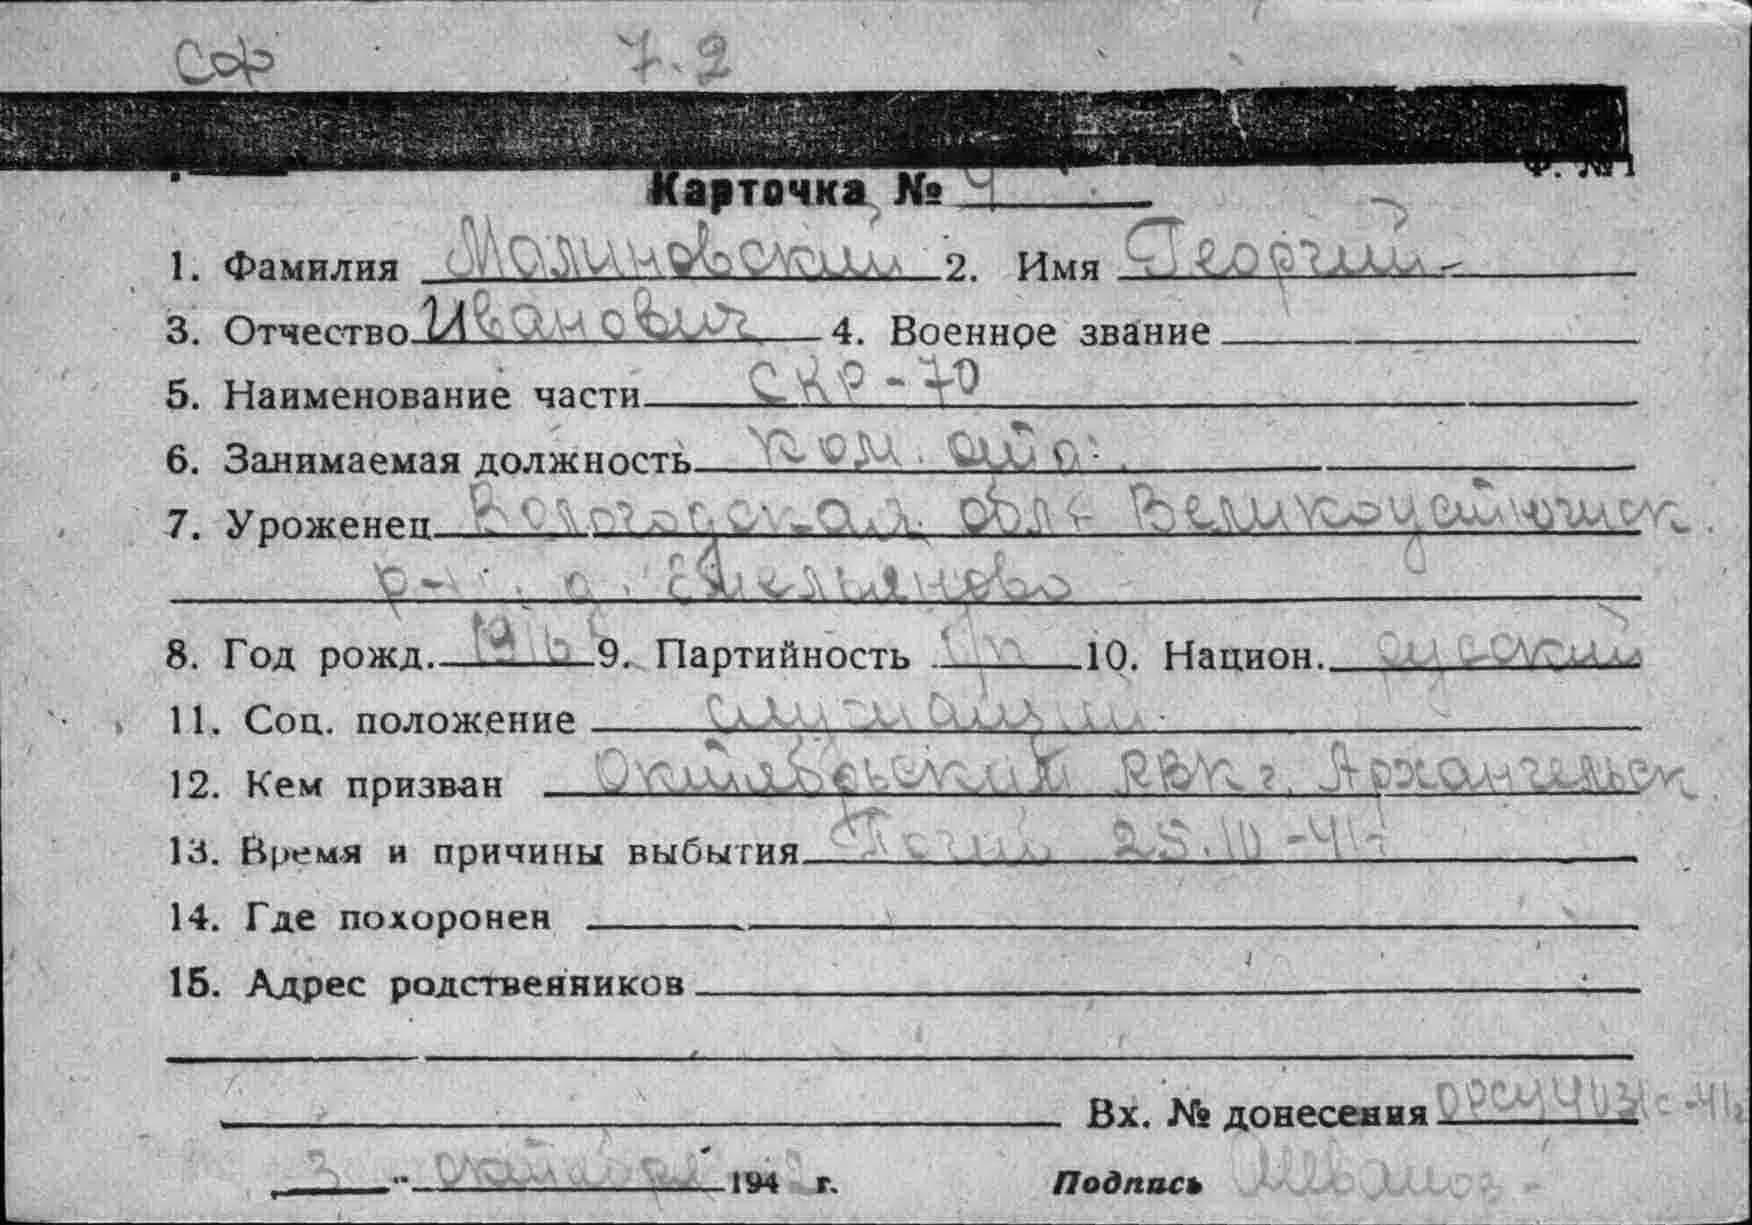 Сф 7.2
Ф. №1
Карточка № 4
1. Фамилия Малиновский 2. Имя Георгий
3. Отчество Иванович 4. Военное звание
5. Наименование части СКР-70
6. Занимаемая должность ком. отд.
7. Уроженец Вологодская обл. Великоустюгск.
р-н. д. Емельяново
8. Год рожд. 9. Партийность 10. Национ. русский
11. Соц. положение служащий
12. Кем призван Октябрьский РВК г. Архангельск
13. Время и причины выбытия Погиб
14. Где похоронен
15. Адрес родственников
Вх. № донесения
3 " октября 194 г. Подпись